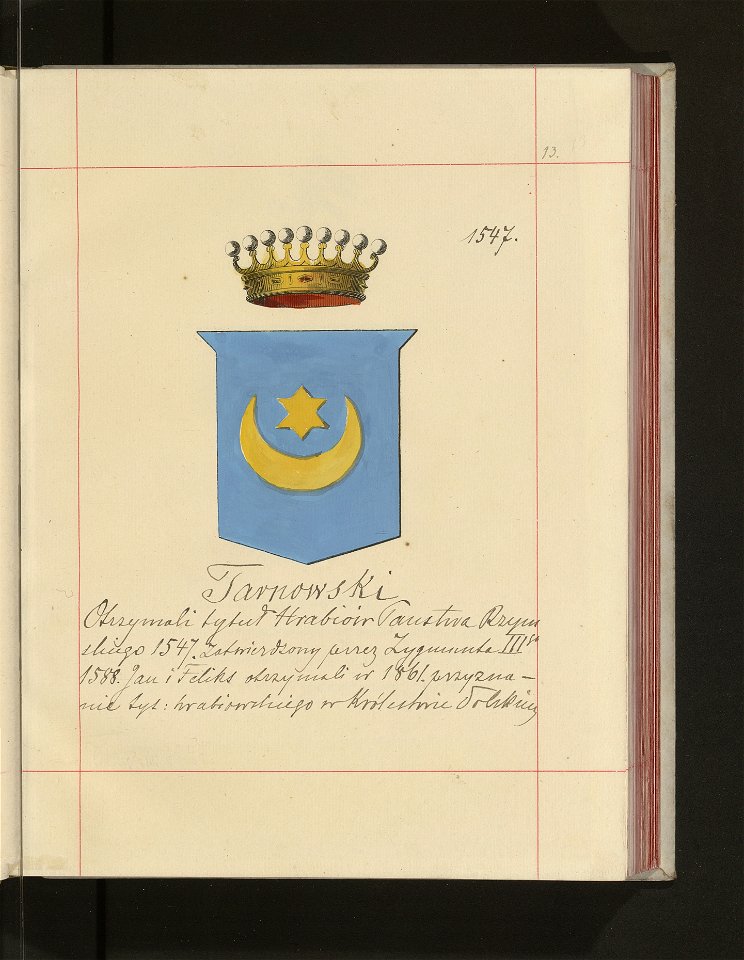 13.
1547.
Tarnowski
Otrzymali tytuł Hrabiów Państwa Rzym
skiego 1547. Zatwierdzony przez Zygmunta III go
1588. Jan i Feliks otrzymali w 1861. przyzna-
nie tyt: hrabiowskiego w Królestwie Polskiem